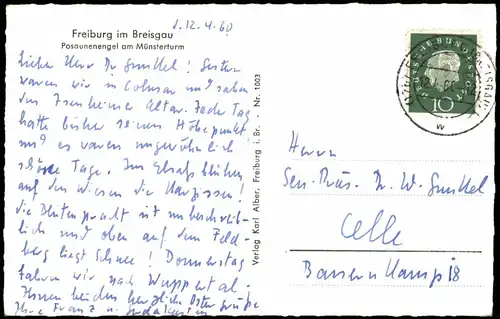 d. 12.4.60
Freiburg im Breisgau
Posaunenengel am Münsterturm
Lieber Herr Dr Gunkel! Gestern
waren wir in Colmar und sahen
den Isenheimer Altar. Jeder Tag
hatte bisher seinen Höhepunkt
und es waren ungewöhnlich
schöne Tage. Im Elsaß blühen
auf den Wiesen die Narzissen!
die Blütenpracht ist unbeschreib-
lich und oben auf dem Feld-
berg liegt Schnee! Donnerstag
fahren wir nach Wuppertal.
Ihnen beiden herzliche Ostergrüße
Ihre Franz u.
Verlag Karl Alber, Freiburg i. Br. - Nr. 1003
DEUTSCHE BUNDESPOST
10
w
Herrn
Sen. Präs. Dr. W. Gunkel
Celle
Bannenkamp 18